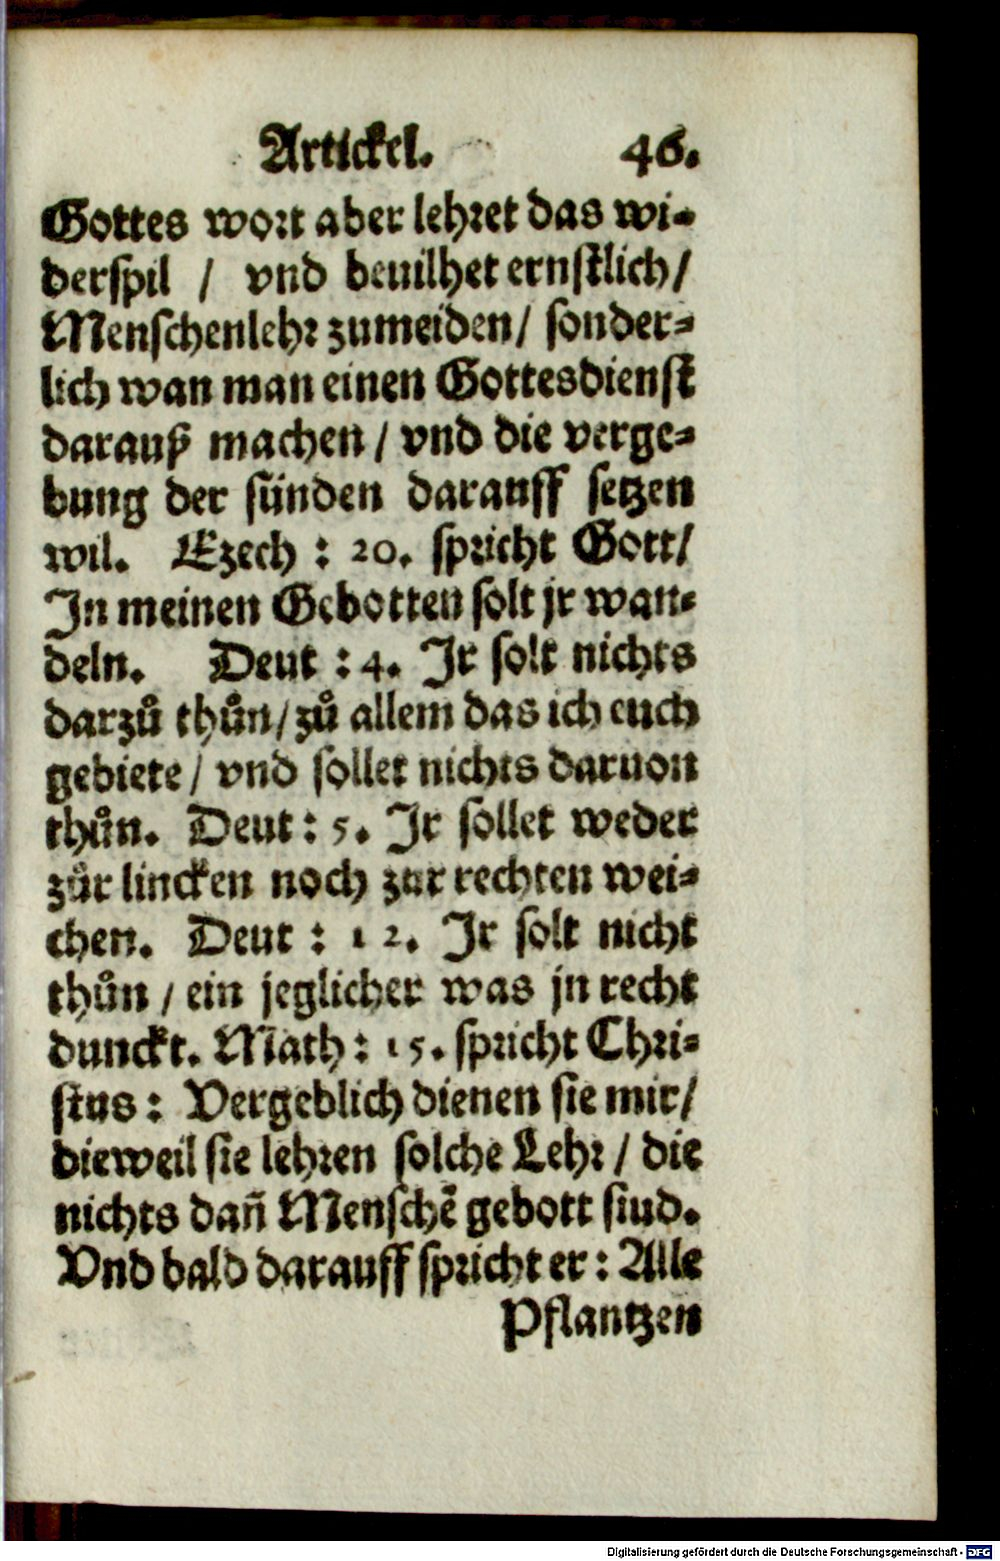 Artickel. 46.
Gottes wort aber lehret das wi-
derspil / vnd beuilhet ernstlich/
Menschenlehr zumeiden/ sonder-
lich wan man einen Gottesdienst
darauß machen / vnd die verge-
bung der sünden darauff setzen
wil. Ezech : 20. spricht Gott/
In meinen Gebotten solt jr wan-
deln. Deut : 4. Ir solt nichts
darzů thůn/zů allem das ich euch
gebiete / vnd sollet nichts daruon
thůn. Deut : 5. Ir sollet weder
zůr lincken noch zur rechten wei-
chen. Deut : 12. Ir solt nicht
thůn / ein jeglicher was jn recht
dunckt. Math : 15. spricht Chri-
stus : Vergeblich dienen sie mir/
dieweil sie lehren solche Lehr / die
nichts dañ Menschẽ gebott siud.
Vnd bald darauff spricht er : Alle
Pflantzen
Digitalisierung gefördert durch die Deutsche Forschungsgemeinschaft - DFG